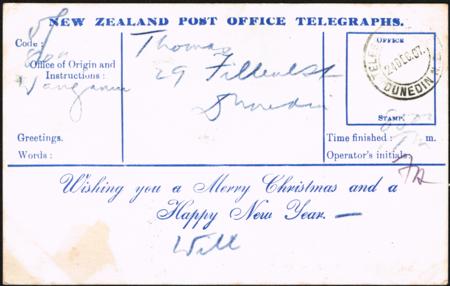 NEW ZEALAND POST OFFICE TELEGRAPHS.
Code:
Office of Origin and
Instructions:
Wanganui
Greetings.
Words:
Thomas
29 Filleul St
Dunedin
OFFICE
DUNEDIN N.Z
STAMP.
Time finished: m.
Operator's initials.
Wishing you a Merry Christmas and a
Happy New Year. —
Will